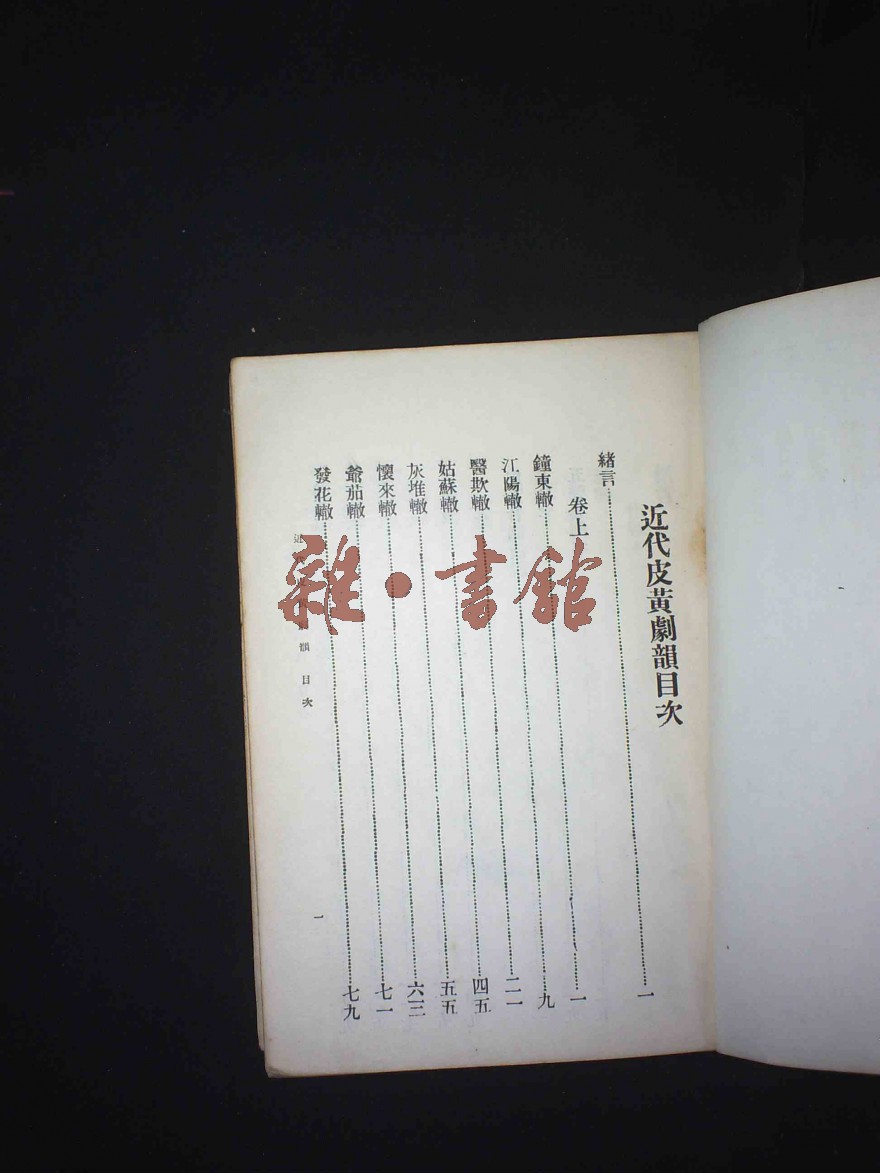 近代皮黃劇韻目次
緒言……一
卷上
鐘東轍……一
江陽轍……九
醫欺轍……二一
姑蘇轍……四五
灰堆轍……五五
懷來轍……六三
爺茄轍……七一
發花轍……七九
韻 目次
一
雜·書館